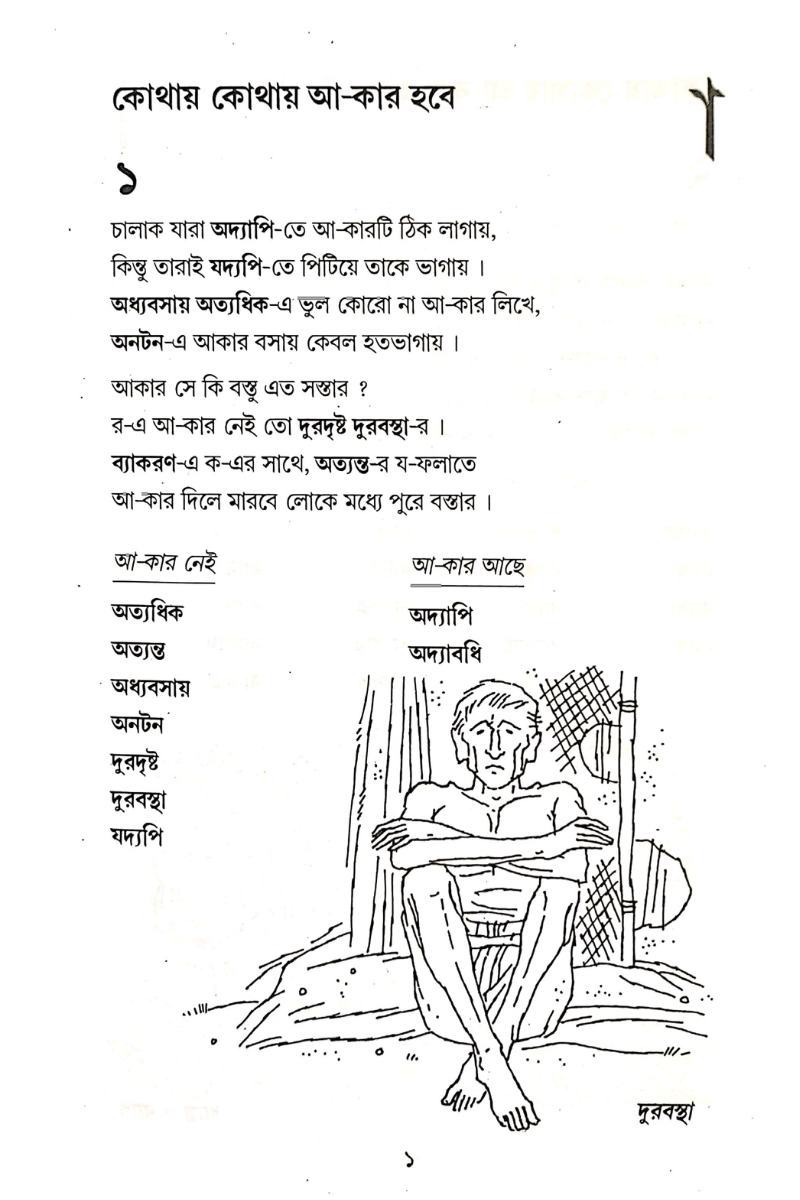 কোথায় কোথায় আ-কার হবে
া
১
চালাক যারা অদ্যাপি-তে আ-কারটি ঠিক লাগায়,
কিন্তু তারাই যদ্যপি-তে পিটিয়ে তাকে ভাগায় ।
অধ্যবসায় অত্যধিক-এ ভুল কোরো না আ-কার লিখে,
অনটন-এ আকার বসায় কেবল হতভাগায় ।
আকার সে কি বস্তু এত সস্তার ?
র-এ আ-কার নেই তো দুরদৃষ্ট দুরবস্থা-র ।
ব্যাকরণ-এ ক-এর সাথে, অত্যন্ত-র য-ফলাতে
আ-কার দিলে মারবে লোকে মধ্যে পুরে বস্তার ।
আ-কার নেই
অত্যধিক
অত্যন্ত
অধ্যবসায়
অনটন
দুরদৃষ্ট
দুরবস্থা
যদ্যপি
আ-কার আছে
অদ্যাপি
অদ্যাবধি
দুরবস্থা
১